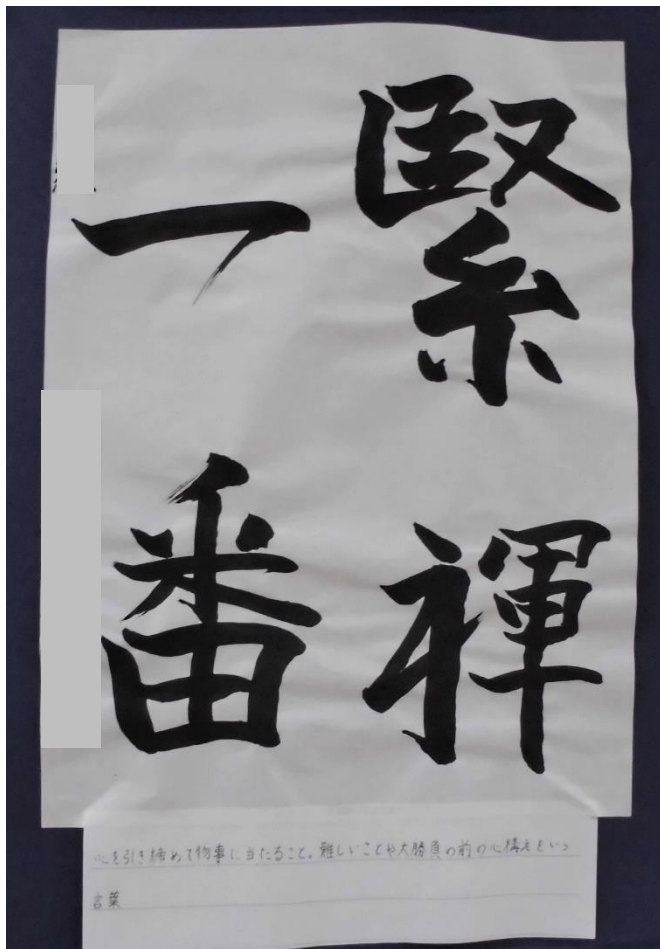 緊褌
一番
心を引き締めて物事に当たること。難しいことや大勝負の前の心構えをいう
言葉